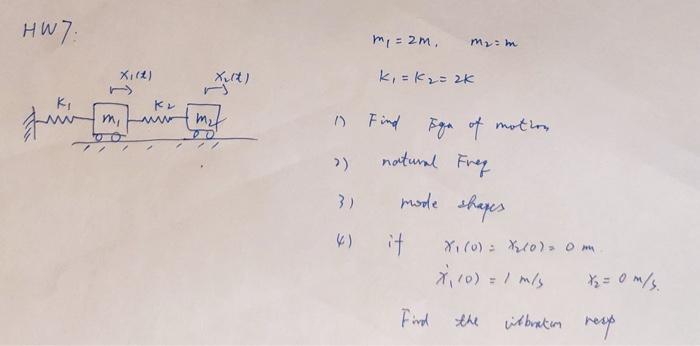 HW7:
m₁ = 2m, m₂ = m
x₁(t) x₂(t)
k₁ = k₂ = 2k
k₁ m₁ k₂ m₂
1) Find Eqn of motion
2) natural Freq
3) mode shapes
4) if x₁(0) = x₂(0) = 0 m.
ẋ₁(0) = 1 m/s ẋ₂ = 0 m/s.
Find the vibration resp